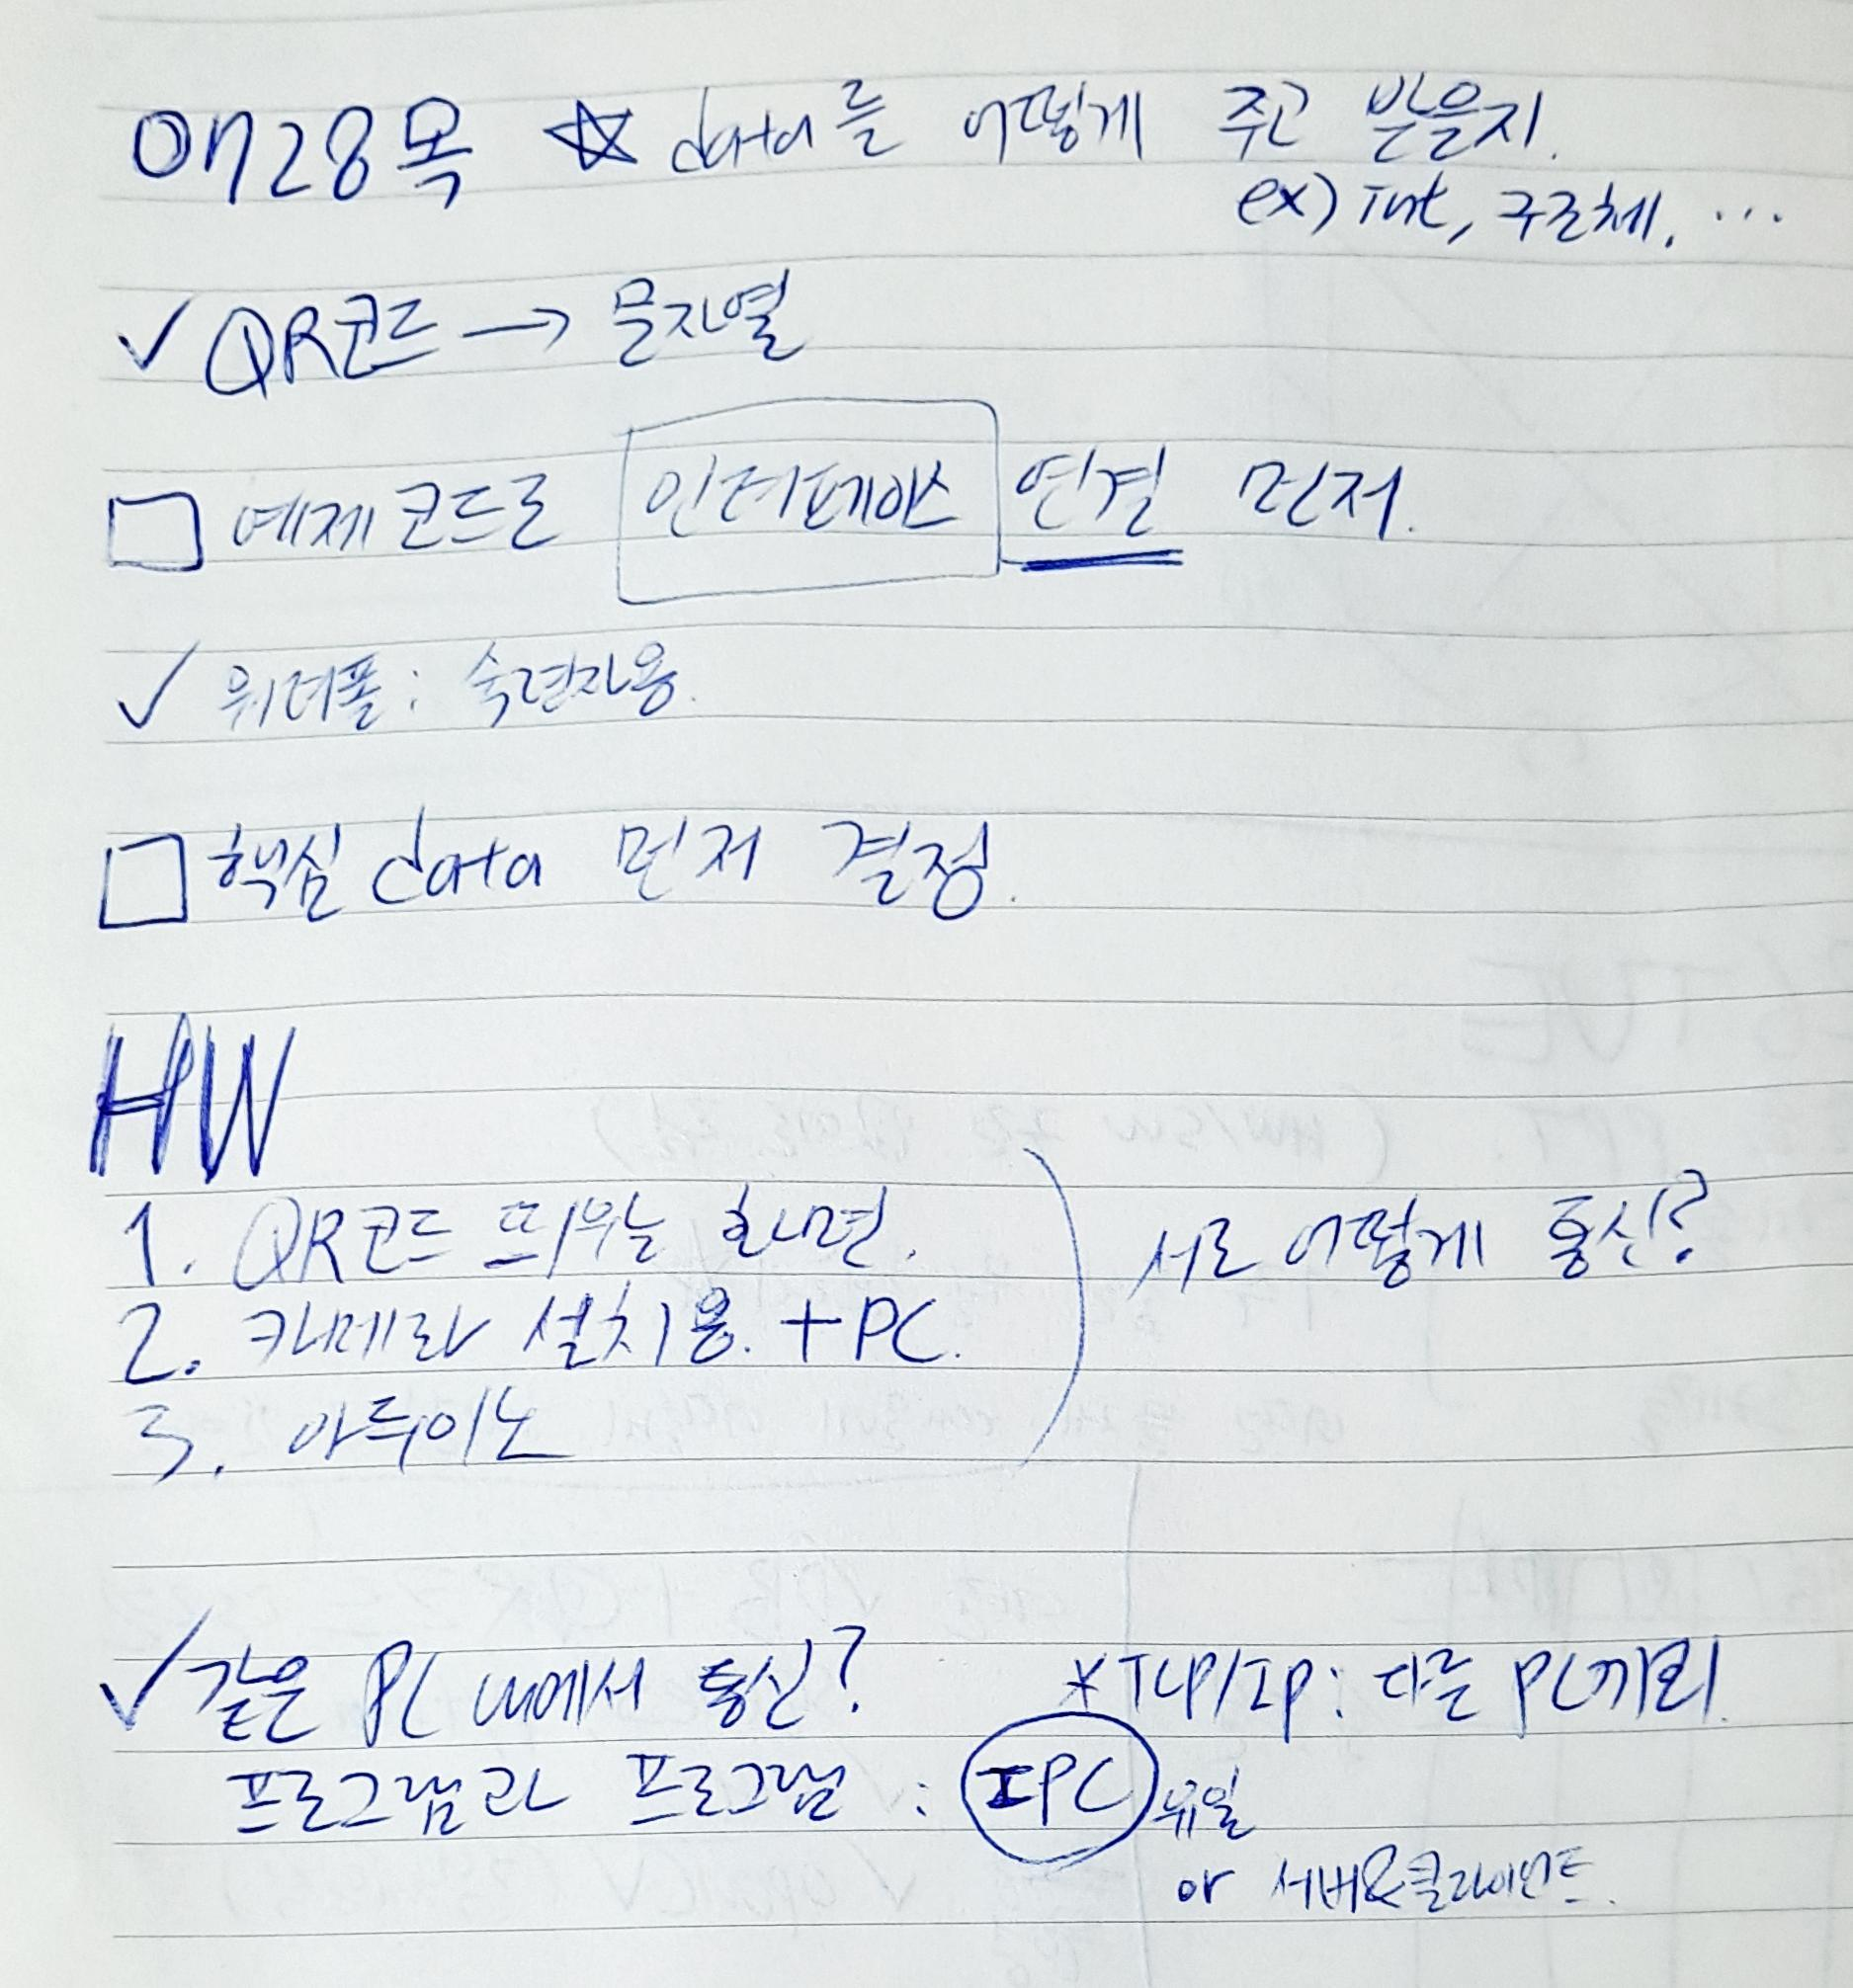 0728목 ☆ data를 어떻게 주고 받을지.
ex) int, 구조체, ...
✓ QR코드 → 문자열
□ 예제코드로 인터페이스 연결 먼저.
✓ 워터폴 : 숙련자용.
□ 핵심 data 먼저 결정.
HW
1. QR코드 띄우는 화면.
2. 카메라 설치용. + PC.
3. 아두이노
서로 어떻게 통신?
✓ 같은 PC 내에서 통신? *TCP/IP : 다른 PC끼리.
프로그램과 프로그램 : IPC 유일
or 서버&클라이언트.